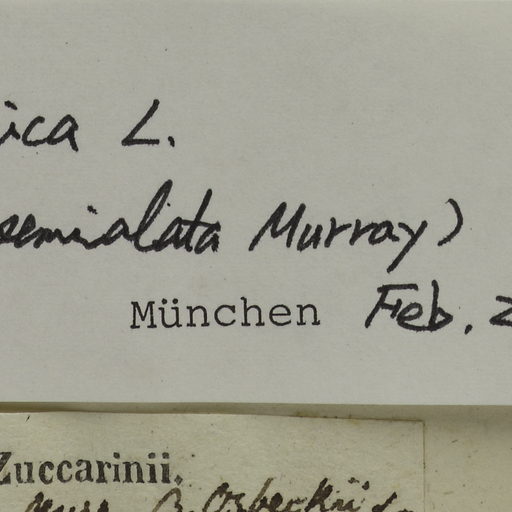 ica L.
semialata Murray)
München Feb. 2
Zuccarinii.
β. Osbeckii